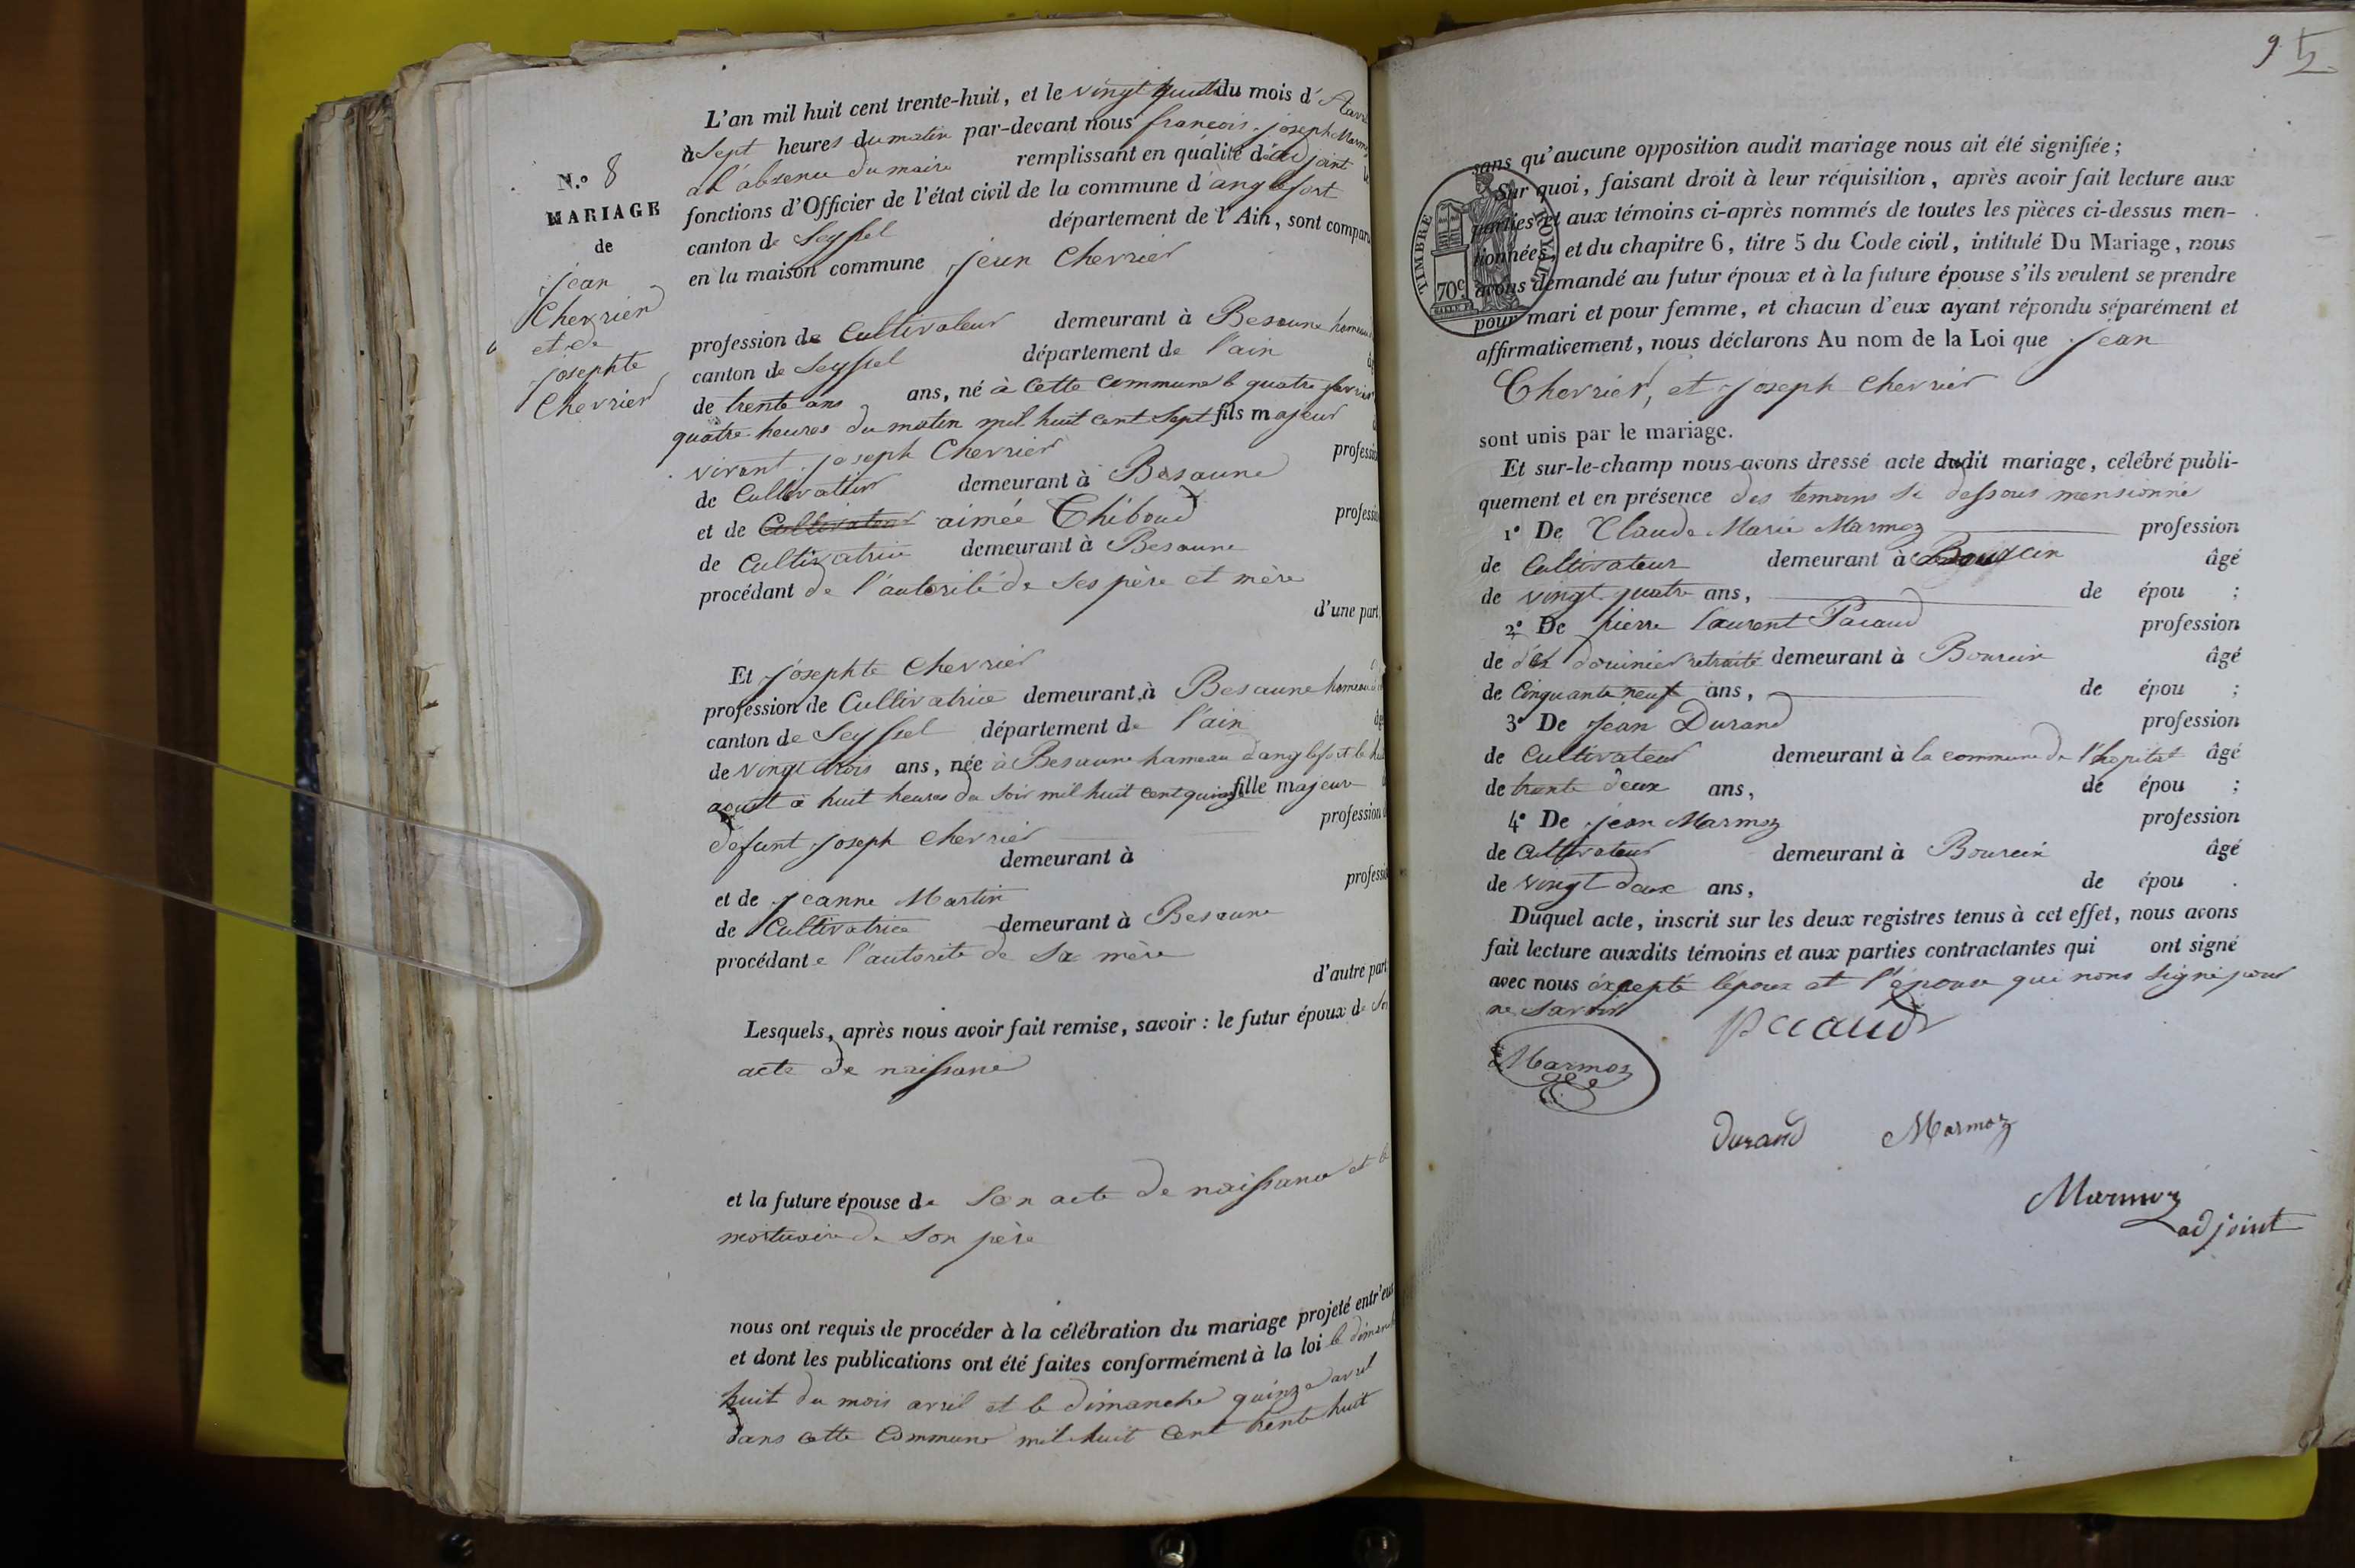 L'an mil huit cent trente-huit, et le vingt du mois d'
à Sept heures du matin par-devant nous françois joseph
a l'absence du maire remplissant en qualité d'adjoint
fonctions d'Officier de l'état civil de la commune d'anglefort
canton de Seyssel département de l'Ain, sont
en la maison commune jean Chevrier
N.º 8
MARIAGE
de
jean
Chevrier
et de
josephte
Chevrier
profession de Cultivateur demeurant à Besaune hameau
canton de Seyssel département de l'ain
de trente ans ans, né à Cette Commune le quatre
quatre heures du matin mil huit cent Sept fils majeur
vivant joseph Chevrier
de Cultivateur demeurant à Besaune
et de Cultivateur aimée Thiboud
de Cultivatrice demeurant à Besaune
procédant de l'autorité de Ses père et mère
d'une part
Et josephte Chevrier
profession de Cultivatrice demeurant à Besaune hameau
canton de Seyssel département de l'ain
de vingt trois ans, née à Besaune hameau d'anglefort le
aoust à huit heures du Soir mil huit cent quinze fille majeure
defunt joseph Chevrier profession
demeurant à
et de jeanne Martin
de Cultivatrice demeurant à Besaune
procédant e l'autorité de Sa mère
d'autre part
Lesquels, après nous avoir fait remise, savoir : le futur époux de Son
acte de naissance
et la future épouse de Son acte de naissance et le
mortuaire de Son père
nous ont requis de procéder à la célébration du mariage projeté entr'eux
et dont les publications ont été faites conformément à la loi le
huit du mois avril et le dimanche quinze avril
dans cette Commune mil huit Cent trente huit
9
sans qu'aucune opposition audit mariage nous ait été signifiée ;
Sur quoi, faisant droit à leur réquisition, après avoir fait lecture aux
parties et aux témoins ci-après nommés de toutes les pièces ci-dessus men-
tionnées, et du chapitre 6, titre 5 du Code civil, intitulé Du Mariage, nous
avons demandé au futur époux et à la future épouse s'ils veulent se prendre
pour mari et pour femme, et chacun d'eux ayant répondu séparément et
affirmativement, nous déclarons Au nom de la Loi que jean
TIMBRE ROYAL
70c
Chevrier, et joseph Chevrier
sont unis par le mariage.
Et sur-le-champ nous avons dressé acte dudit mariage, célébré publi-
quement et en présence des temoins Si dessous mensionné
1º De Claude Marie Marmoz profession
de Cultivateur demeurant à âgé
de vingt quatre ans, de épou ;
2º De pierre laurent Pacaud profession
de retraité demeurant à Bourcin âgé
de Cinquante neuf ans, de épou ;
3º De jean Durand profession
de Cultivateur demeurant à la commune de l'hopital âgé
de trente deux ans, de épou ;
4º De jean Marmoz profession
de Cultivateur demeurant à Bourcin âgé
de vingt deux ans, de épou .
Duquel acte, inscrit sur les deux registres tenus à cet effet, nous avons
fait lecture auxdits témoins et aux parties contractantes qui ont signé
avec nous éxcepté l'époux et l'épouse qui nons Signé pour
ne Savoir
Pacaud
Marmoz
durand Marmoz
Marmoz
adjoint